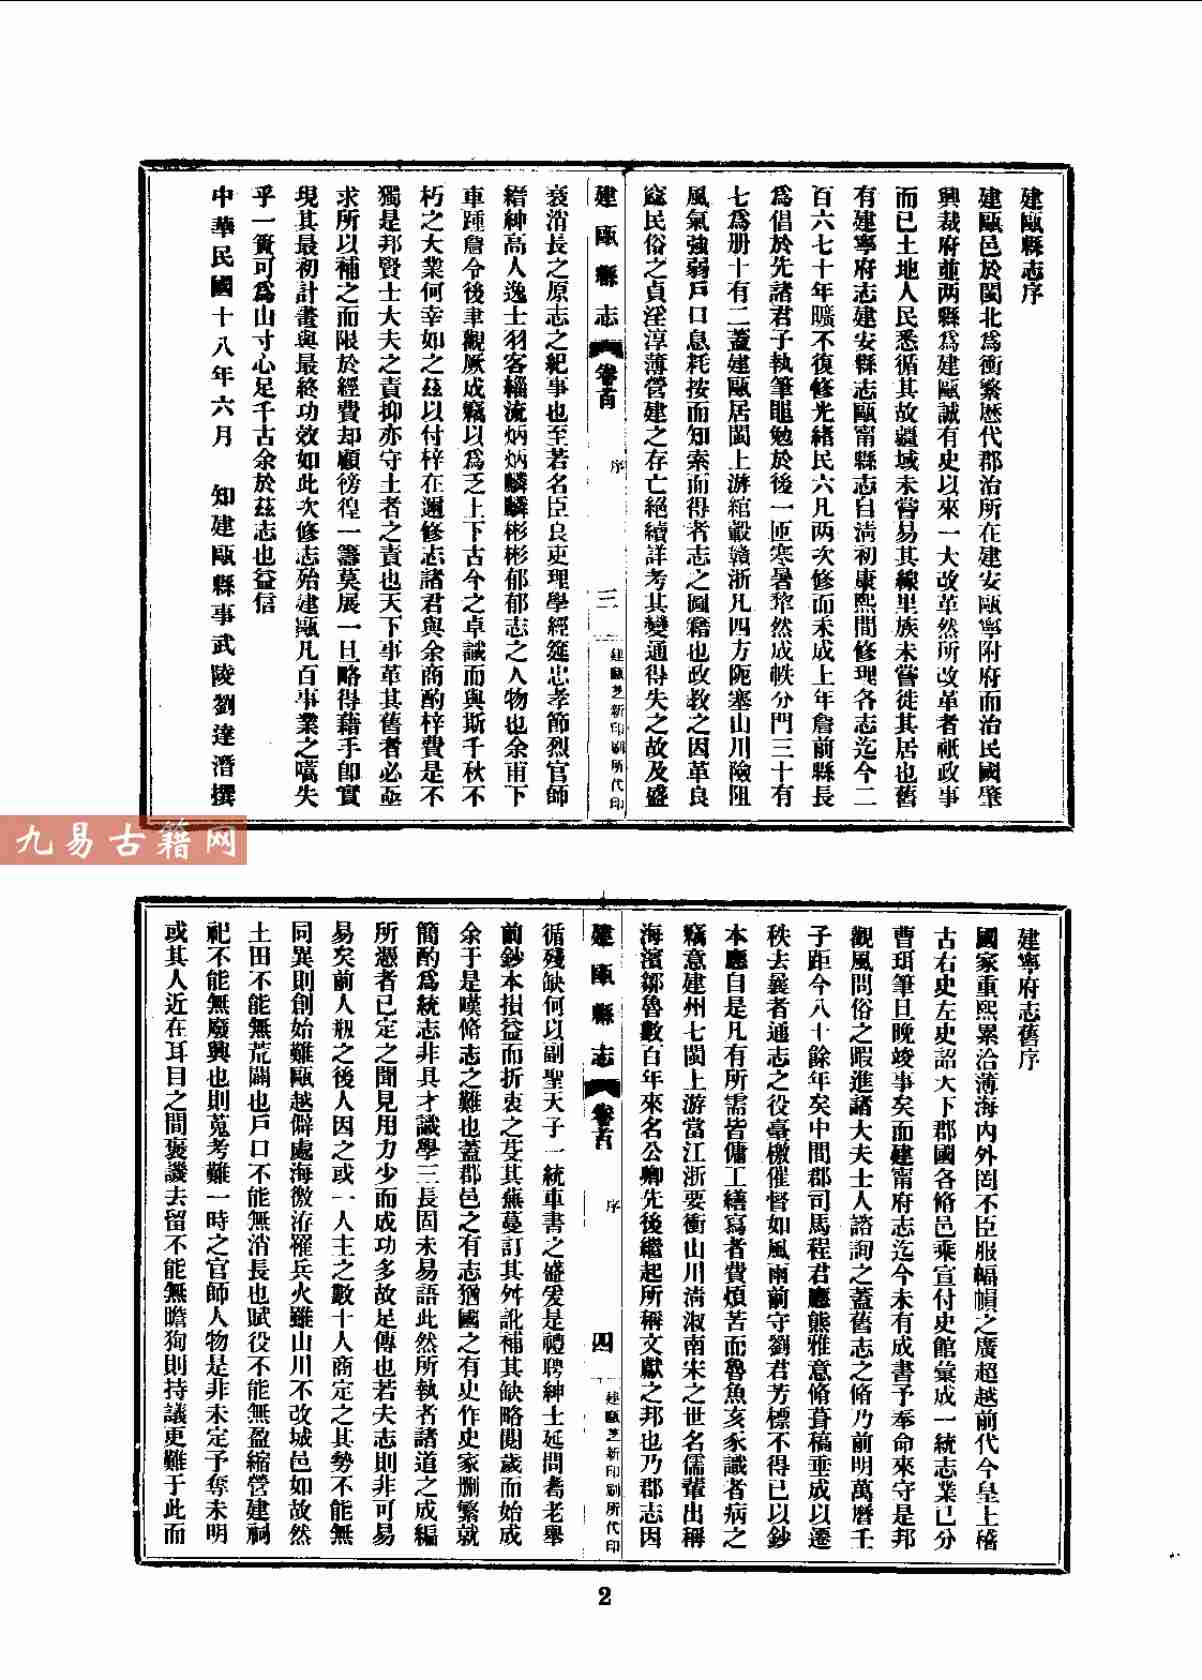 建甌縣志序
建甌邑於閩北爲衝繁歷代郡治所在建安甌寧附府而治民國肇
興裁府並两縣爲建甌誠有史以來一大改革然所改革者祇政事
而已土地人民悉循其故疆域未嘗易其線里族未嘗徙其居也舊
有建寧府志建安縣志甌甯縣志自淸初康熙間修理各志迄今二
百六七十年曠不復修光緒民六凡两次修而未成上年詹前縣長
爲倡於先諸君子執筆黽勉於後一匝寒暑犂然成帙分門三十有
七爲册十有二蓋建甌居閩上游綰轂贛浙凡四方阨塞山川險阻
風氣强弱戶口息耗按而知索而得者志之圖籍也政敎之因革良
窳民俗之貞淫淳薄營建之存亡絕續詳考其變通得失之故及盛
建甌縣志 卷首 序 三 建甌芝新印刷所代印
衰消長之原志之紀事也至若名臣良吏理學經筵忠孝節烈官師
縉紳高人逸士羽客緇流炳炳麟麟彬彬郁郁志之人物也余甫下
車踵詹令後聿觀厥成竊以爲乏上下古今之卓識而與斯千秋不
朽之大業何幸如之茲以付梓在邇修志諸君與余商酌梓費是不
獨是邦賢士大夫之責抑亦守土者之責也天下事革其舊者必亟
求所以補之而限於經費却顧徬徨一籌莫展一旦略得藉手卽實
現其最初計畫與最終功效如此次修志殆建甌凡百事業之嚆矢
乎一簣可爲山寸心足千古余於茲志也益信
中華民國十八年六月 知建甌縣事武陵劉達潛撰
建寧府志舊序
國家重熙累洽薄海內外罔不臣服幅幀之廣超越前代今皇上稽
古右史左史詔大下郡國各脩邑乘宣付史館彙成一統志業已分
曹珥筆旦晚竣事矣而建甯府志迄今未有成書予奉命來守是邦
觀風問俗之暇進諸大夫士人諮詢之蓋舊志之脩乃前明萬曆壬
子距今八十餘年矣中間郡司馬程君應熊雅意脩葺稿垂成以遷
秩去曩者通志之役臺檄催督如風雨前守劉君芳標不得已以鈔
本應自是凡有所需皆傭工繕寫者費煩苦而魯魚亥豕識者病之
竊意建州七閩上游當江浙要衝山川淸淑南宋之世名儒輩出稱
海濱鄒魯數百年來名公卿先後繼起所稱文獻之邦也乃郡志因
建甌縣志 卷首 序 四 建甌芝新印刷所代印
循殘缺何以副聖天子一統車書之盛爰是禮聘紳士延問耆老舉
前鈔本損益而折衷之芟其蕪蔓訂其舛訛補其缺略閱歲而始成
余于是嘆脩志之難也蓋郡邑之有志猶國之有史作史家刪繁就
簡酌爲統志非具才識學三長固未易語此然所執者諸道之成編
所憑者已定之聞見用力少而成功多故足傳也若夫志則非可易
易矣前人剏之後人因之或一人主之數十人商定之其勢不能無
同異則創始難甌越僻處海徼洊罹兵火雖山川不改城邑如故然
土田不能無荒闢也戶口不能無消長也賦役不能無盈縮營建祠
祀不能無廢興也則蒐考難一時之官師人物是非未定予奪未明
或其人近在耳目之間褒譏去留不能無瞻狥則持議更難于此而
2
九易古籍网